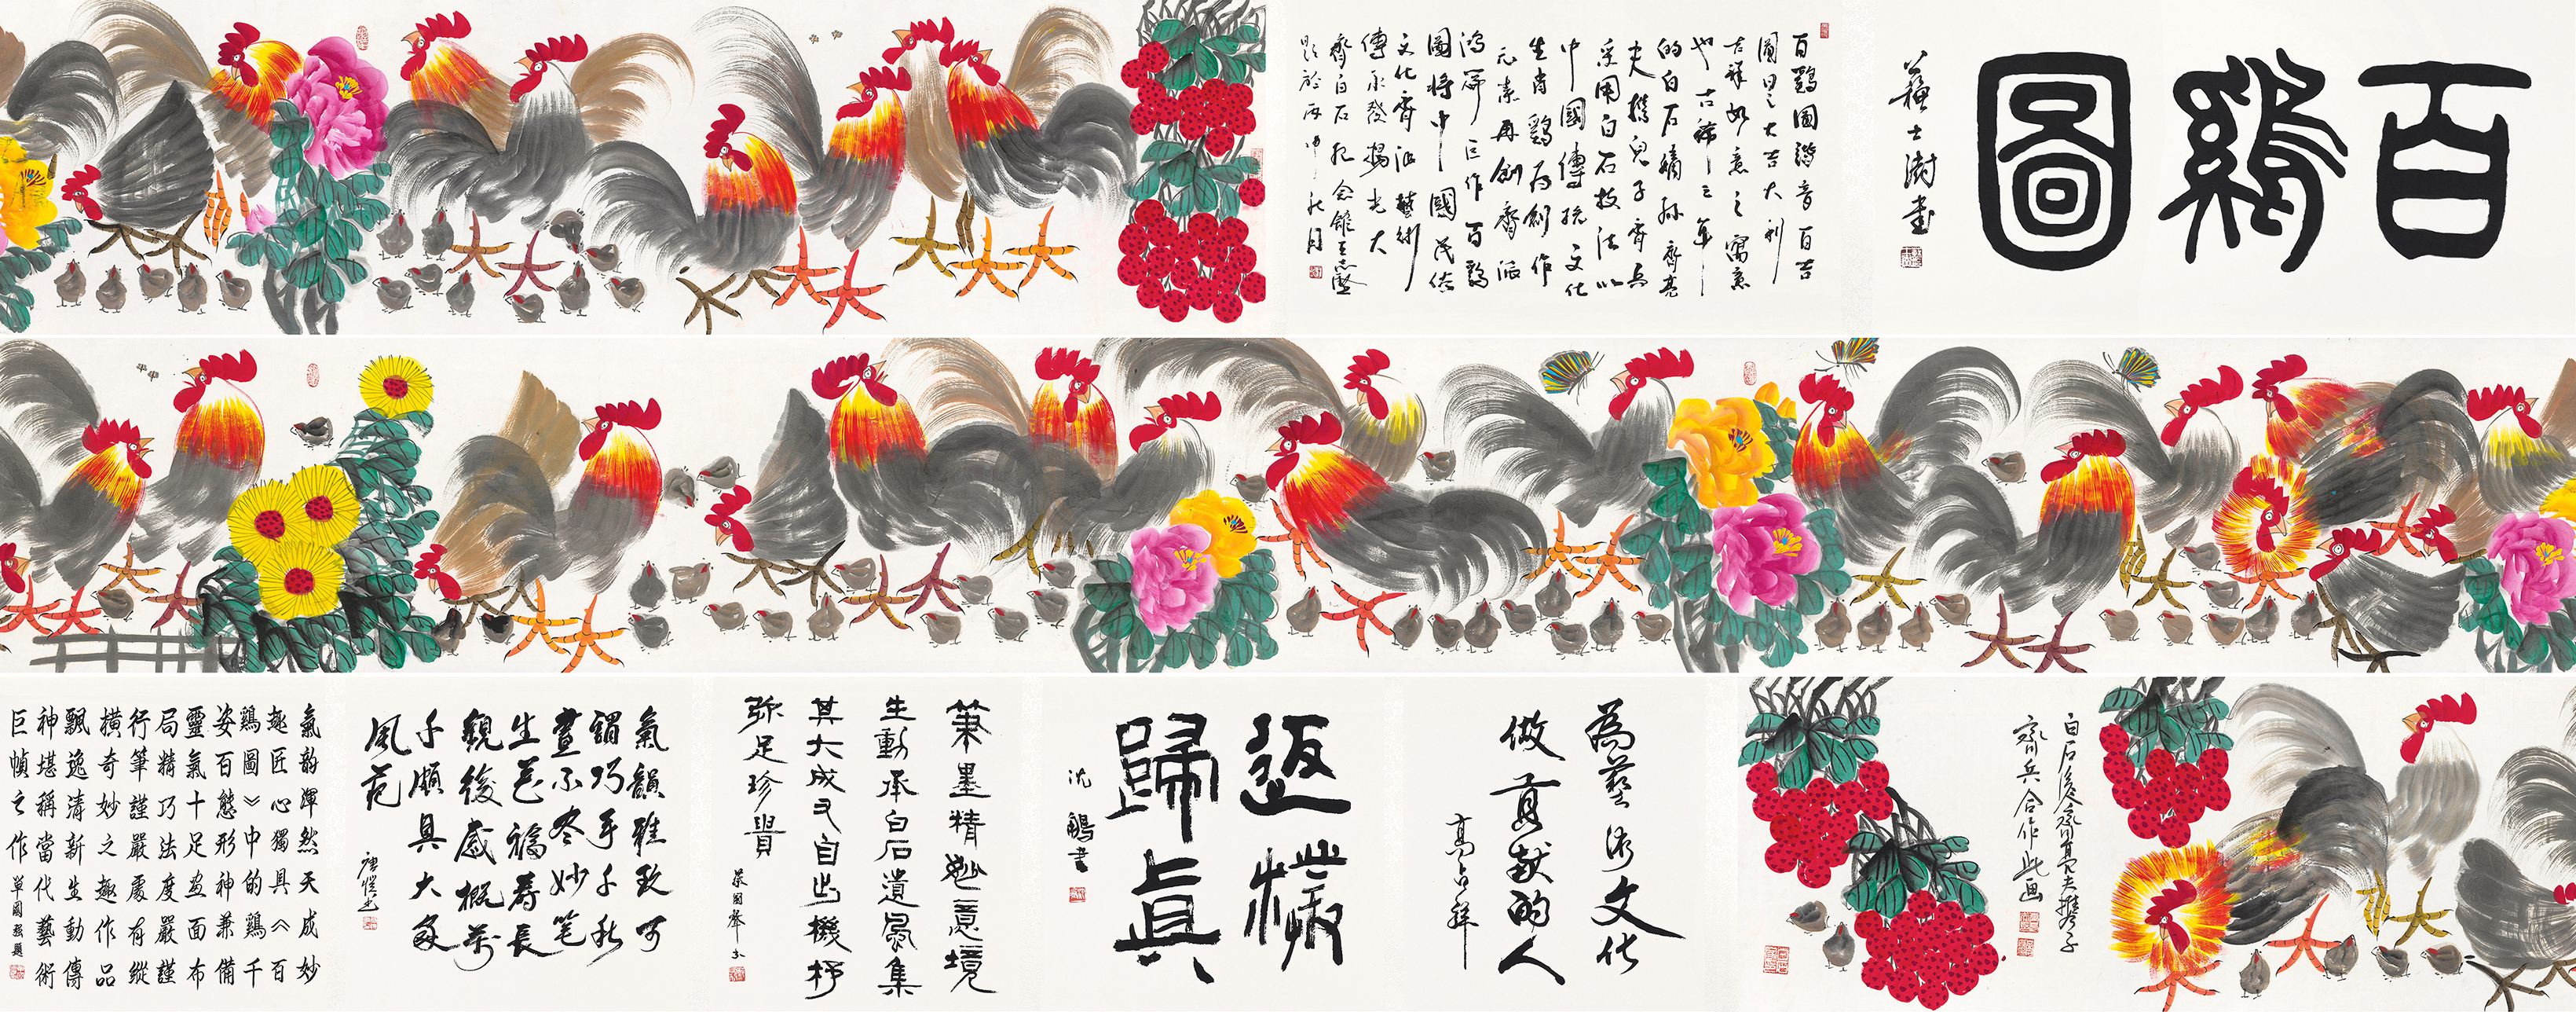 百鷄圖
蘇士澍書
百鷄圖諧音百吉
圖日之大吉大利
吉祥如意之寓意
也古稀之年
的白石嫡孫齊亮
夫携兒子齊兵
采用白石技法以
中國傳統文化
生肖鷄爲創作
元素再創齊派
鴻篇巨作百鷄
圖將中國民俗
文化齊派藝術
傳承發揚光大
齊白石紀念館王志堅
題於丙申秋月
白石後裔齊亮夫携子
齊兵合作此画
為藝術文化
做貢献的人
高占祥
返樸
歸真
沈鵬書
筆墨精妙意境
生動承白石遺風集
其大成又自出機杼
弥足珍貴
氣韻雅致可
謂巧手千秋
畫不盡妙笔
生花福壽長
觀後感概萬
千頗具大家
風范
唐愷書
氣韵渾然天成妙
趣匠心獨具《百
鷄圖》中的鷄千
姿百態形神兼備
靈氣十足画面布
局精巧法度嚴謹
行筆謹嚴處有縱
横奇妙之趣作品
飄逸清新生動傳
神堪稱當代藝術
巨幀之作
單國强題